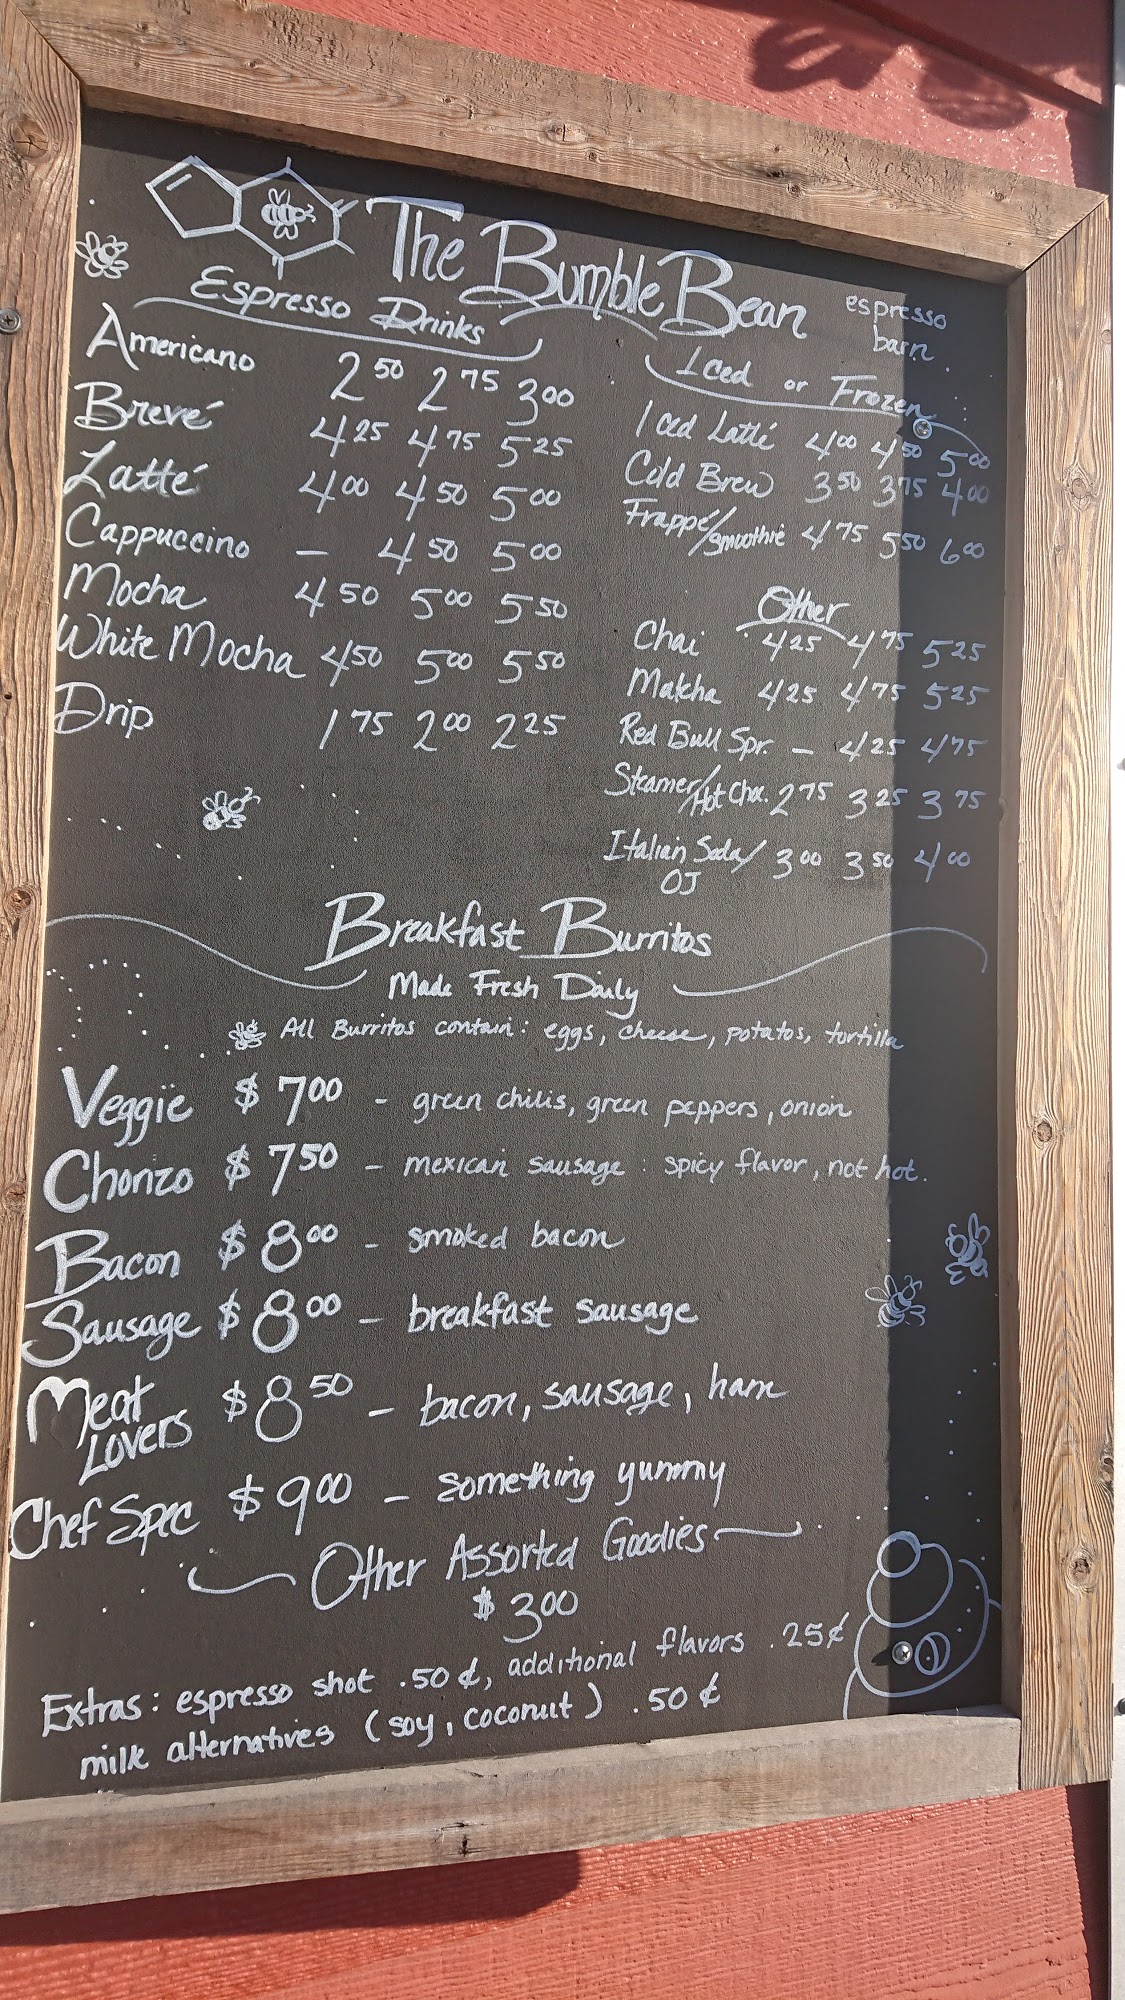 The Bumble Bean espresso barn
Espresso Drinks
Americano 2.50 2.75 3.00
Brevé 4.25 4.75 5.25
Latté 4.00 4.50 5.00
Cappuccino – 4.50 5.00
Mocha 4.50 5.00 5.50
White Mocha 4.50 5.00 5.50
Drip 1.75 2.00 2.25
Iced or Frozen
Iced Latté 4.00 4.50 5.00
Cold Brew 3.50 3.75 4.00
Frappé/smoothie 4.75 5.50 6.00
Other
Chai 4.25 4.75 5.25
Matcha 4.25 4.75 5.25
Red Bull Spr. – 4.25 4.75
Steamer/Hot Choc. 2.75 3.25 3.75
Italian Soda/ 3.00 3.50 4.00
OJ
Breakfast Burritos
Made Fresh Daily
All Burritos contain: eggs, cheese, potatos, tortilla
Veggie $7.00 - green chilis, green peppers, onion
Chorizo $7.50 - mexican sausage: spicy flavor, not hot.
Bacon $8.00 - smoked bacon
Sausage $8.00 - breakfast sausage
Meat Lovers $8.50 - bacon, sausage, ham
Chef Spec $9.00 - something yummy
Other Assorted Goodies
$3.00
Extras: espresso shot .50¢, additional flavors .25¢
milk alternatives (soy, coconut) .50¢